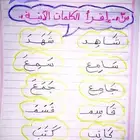 اقرأ الكلمات الآتية
شَاهِد شَهِدَ
سَامِع سَمِعَ
جَامِع جَمَعَ
قَاسِم قَسَمَ
كَاتِب كَتَبَ